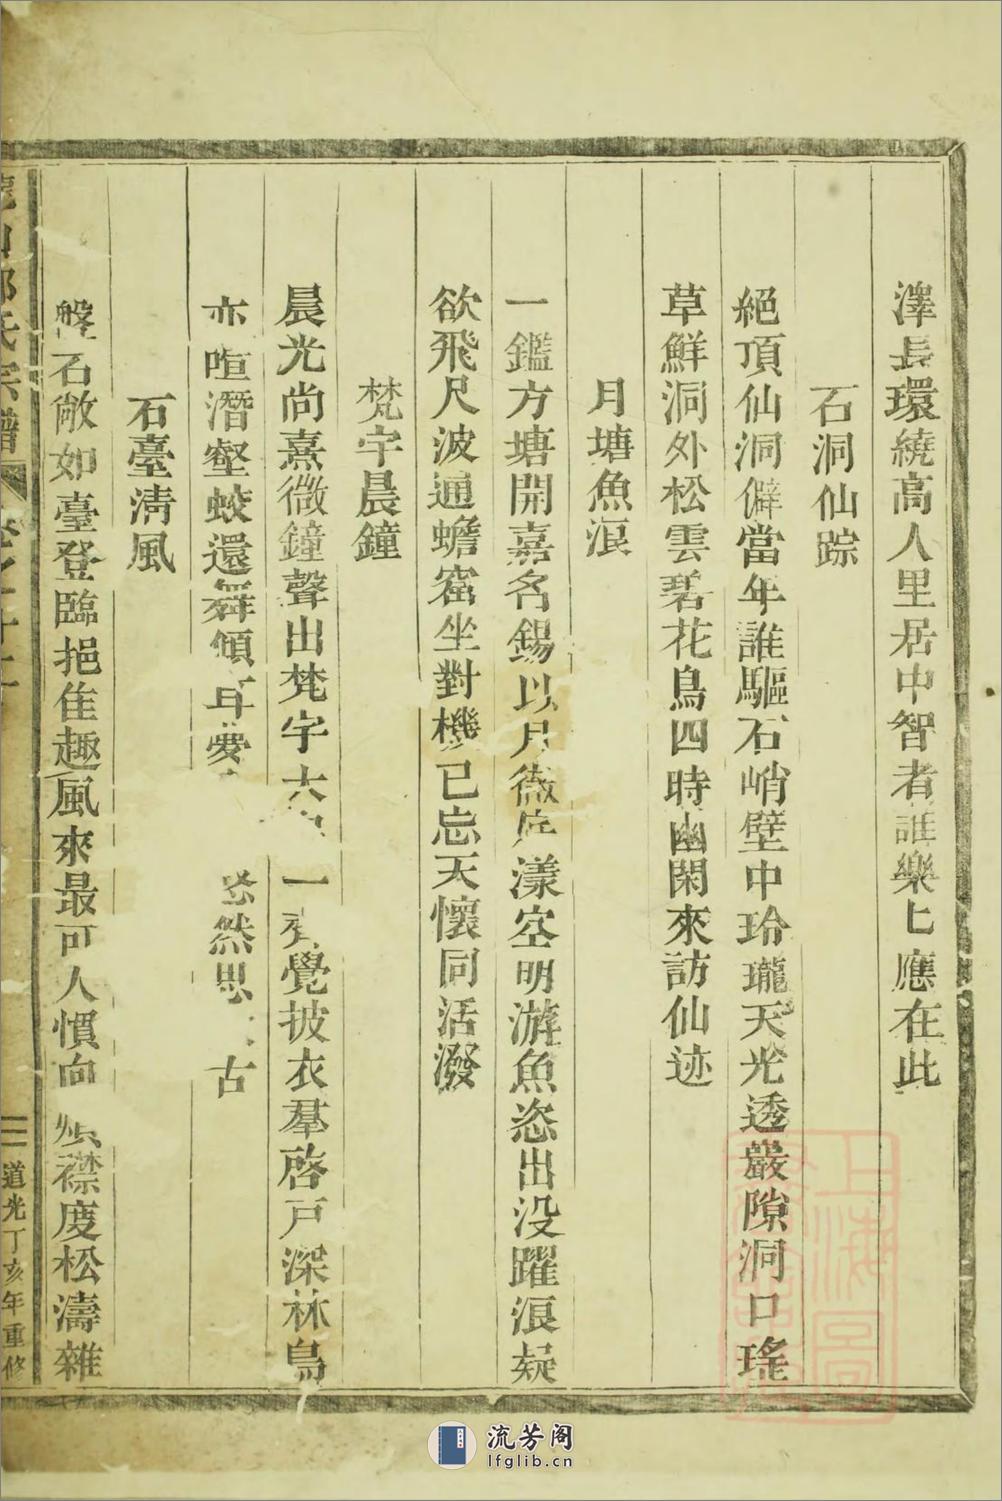 澤長環繞高人里居中智者誰樂七應在此
石洞仙踪
絕頂仙洞僻當年誰驅石峭壁中玲瓏天光透巖隙洞口瑤
草鮮洞外松雲碧花鳥四時幽閑來訪仙迹
月塘魚浪
一鑑方塘開嘉名錫以月微 漾空明游魚恣出没躍浪疑
欲飛尺波通蟾窟坐對機已忘天懷同活潑
梵宇晨鐘
晨光尚熹微鐘聲出梵宇 一 覺披衣羣啓戸深林鳥
亦喧潛壑蛟還舞傾耳愛 悠然思 古
石臺清風
盤石敞如臺登臨挹佳趣風來最可人慣向 襟度松濤雜
氏宗譜
道光丁亥年重修
上海圖
流芳阁
lfglib.cn